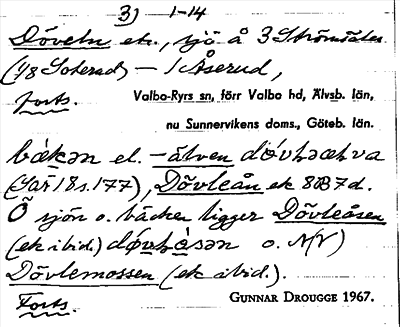 3) 1-14
Döveln ek., sjö å 3 Strömsäter
(1/8 Soterud) – 1 Åserud,
forts.
Valbo-Ryrs sn, förr Valbo hd, Älvsb. län,
nu Sunnervikens doms., Göteb. län.
bäkən el. –älven
(Sax 18 s. 177), Dövleån ek 8B7d.
Ö sjön o. bäcken ligger Dövleåsen
(ek ibid.) o. NV)
Dövlemossen (ek ibid.).
Forts.
GUNNAR DROUGGE 1967.